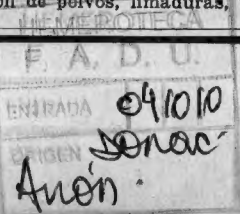 ón de polvos, limaduras,
HEMEROTECA
F. A. D. U.
ENTRADA 041010
ORIGEN Donac.
Anón.